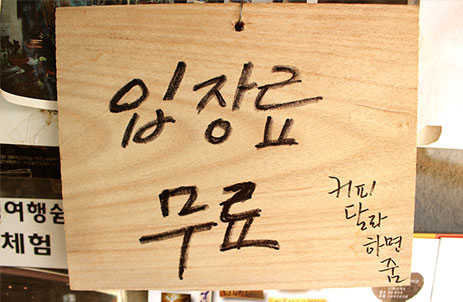 입장료
무료
커피
달라
하면
줌
여행숨
체험